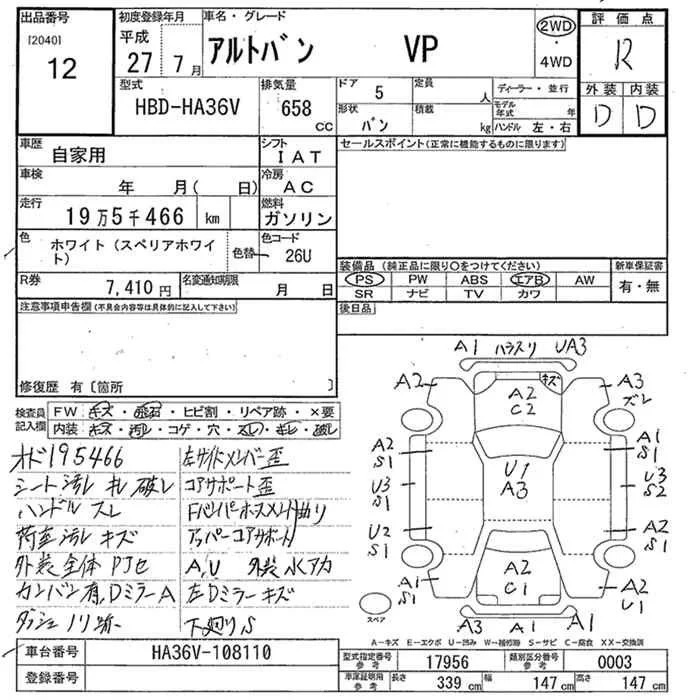 出品番号 初度登録年月 車名・グレード 評価点
[2040] 12
平成 27 7月
アルトバン VP
2WD ・ 4WD
R
型式 排気量 ドア 5 定員 人 ディーラー・並行 外装 内装
HBD-HA36V 658 CC
形状 バン 積載 kg モデル年式 年 ハンドル 左・右
D D
車歴 自家用 シフト IAT セールスポイント(正常に機能するものに限ります)
車検 年 月( 日) 冷房 AC
走行 19万5千466 km 燃料 ガソリン
色 ホワイト(スペリアホワイト) 色替 色コード 26U
装備品(純正品に限り○をつけてください) 新車保証書
R券 7,410円 名変通知期限 月 日
PS PW ABS エアB AW 有・無
SR ナビ TV カワ
注意事項申告欄(不具合内容等は具体的に記入して下さい) 後日品
修復歴 有〔箇所 〕
検査員記入欄 FW キズ・飛石・ヒビ割・リペア跡・×要
内装 キズ・汚れ・コゲ・穴・スレ・キレ・破レ
オド195466 左サイドメンバー歪
シート汚レ キレ 破レ コアサポート歪
ハンドル スレ
荷室 汚レ キズ アッパーコアサポート
外装全体 A,U 外装 水アカ
カンバン有,Dミラー A 左Dミラー キズ
下廻りS
A1 ハラスリ UA3
A2 キズ A3 ズレ
A2 C2
A2 S1 A1 S1
U1 A3
U3 S1 U3 S2
U2 S1 A2 S1
A2 C1
A1 S1 A2 U1
スペア A3 A1 A1
A-キズ E-エクボ U-凹み W-補修跡 S-サビ C-腐食 XX-交換済
車台番号 HA36V-108110
型式指定番号 参考 17956 類別区分番号 参考 0003
登録番号
車庫証明用 参考 長さ 339 cm 幅 147 cm 高さ 147 cm